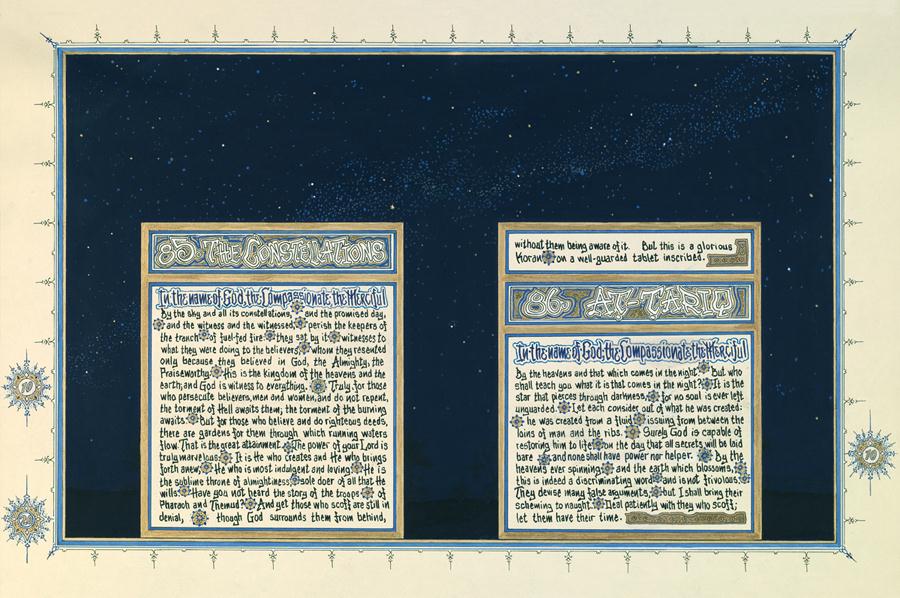 85 The Constelations
In the name of God, the Compassionate, the Merciful
By the sky and all its constellations, and the promised day,
and the witness and the witnessed, perish the keepers of
the trench of fuel-fed fire they sat by it witnesses to
what they were doing to the believers, whom they resented
only because they believed in God, the Almighty, the
Praiseworthy. His is the kingdom of the heavens and the
earth, and God is witness to everything. Truly, for those
who persecute believers, men and women, and do not repent,
the torment of Hell awaits them; the torment of the burning
awaits. But for those who believe and do righteous deeds,
there are gardens for them through which running waters
flow. That is the great attainment. The power of your Lord is
truly marvelous. It is He who creates and He who brings
forth anew. He who is most indulgent and loving. He is
the sublime throne of almightiness, sole doer of all that He
wills. Have you not heard the story of the troops of
Pharaoh and Themud? And yet those who scoff are still in
denial, though God surrounds them from behind,
without them being aware of it. But this is a glorious
Koran on a well-guarded tablet inscribed.
86 At-Tariq
In the name of God, the Compassionate, the Merciful
By the heavens and that which comes in the night. But who
shall teach you what it is that comes in the night? It is the
star that pierces through darkness, for no soul is ever left
unguarded. Let each consider out of what he was created:
he was created from a fluid issuing from between the
loins of man and the ribs. Surely God is capable of
restoring him to life on the day that all secrets will be laid
bare and none shall have power nor helper. By the
heavens ever spinning and the earth which blossoms,
this is indeed a discriminating word and is not frivolous.
They devise many false arguments, but I shall bring their
scheming to naught. Deal patiently with they who scoff;
let them have their time.